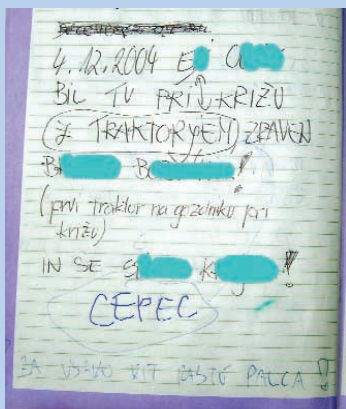 4.12.2004 E
BIL TU PRI KRIŽU
Z TRAKTORJEM ZRAVEN
B B !
(prvi traktor na gozdniku pri
križu)
IN SE K !
CEPEC
ZA VSAKO RIT RASTE PALCA !